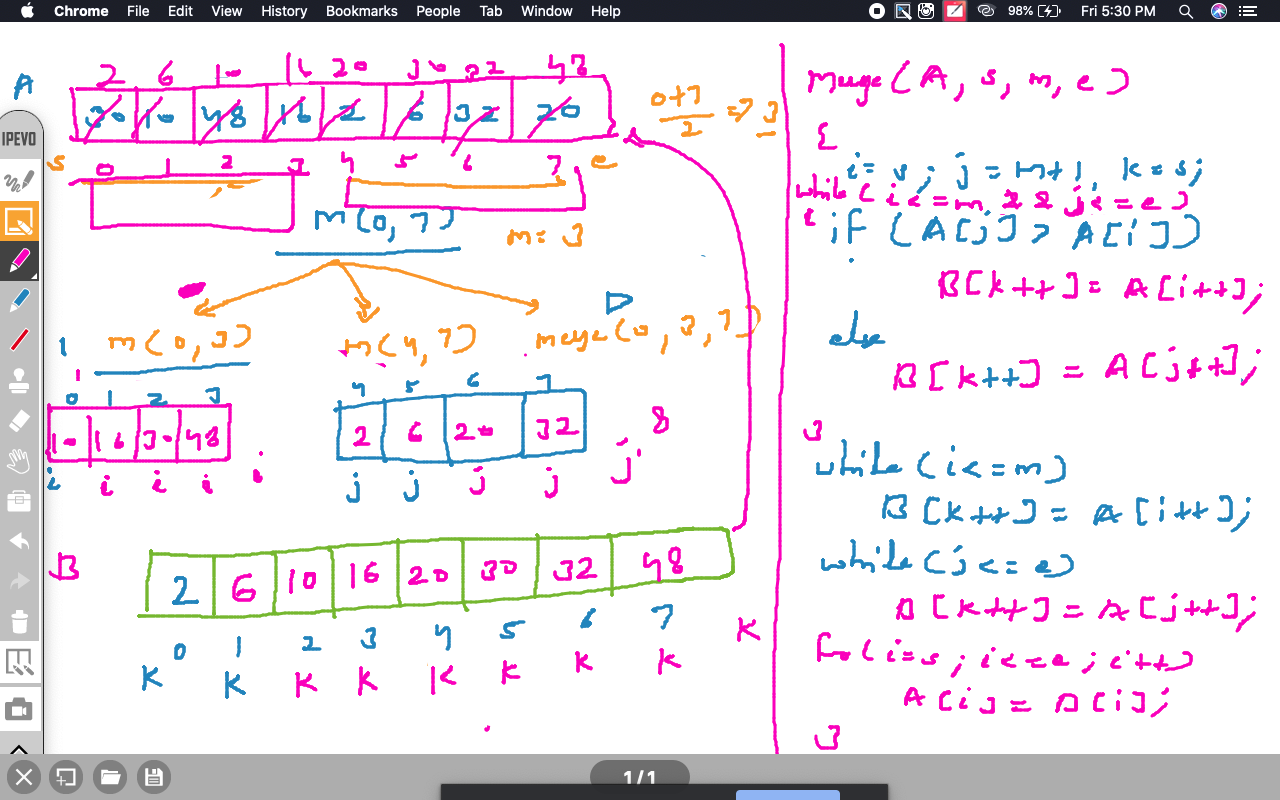 Chrome File Edit View History Bookmarks People Tab Window Help 98% Fri 5:30 PM
IPEVO
A
2 6 10 16 20 30 32 48
30 10 48 16 2 6 32 20
s 0 1 2 3 4 5 6 7 e
0+7/2 => 3
m(0, 7)
m = 3
m(0, 3) m(4, 7) merge(0, 3, 7)
1
1
0 1 2 3
10 16 30 48
i i i i i
4 5 6 7
2 6 20 32
j j j j j
8
B
2 6 10 16 20 30 32 48
0 1 2 3 4 5 6 7
K K K K K K K K K
merge(A, s, m, e)
{
i = s; j = m+1, k = s;
while(i<=m && j<=e)
{
if (A[j] > A[i])
B[k++] = A[i++];
else
B[k++] = A[j++];
}
while(i<=m)
B[k++] = A[i++];
while(j<=e)
B[k++] = A[j++];
for(i=s; i<=e; i++)
A[i] = B[i];
}
1/1